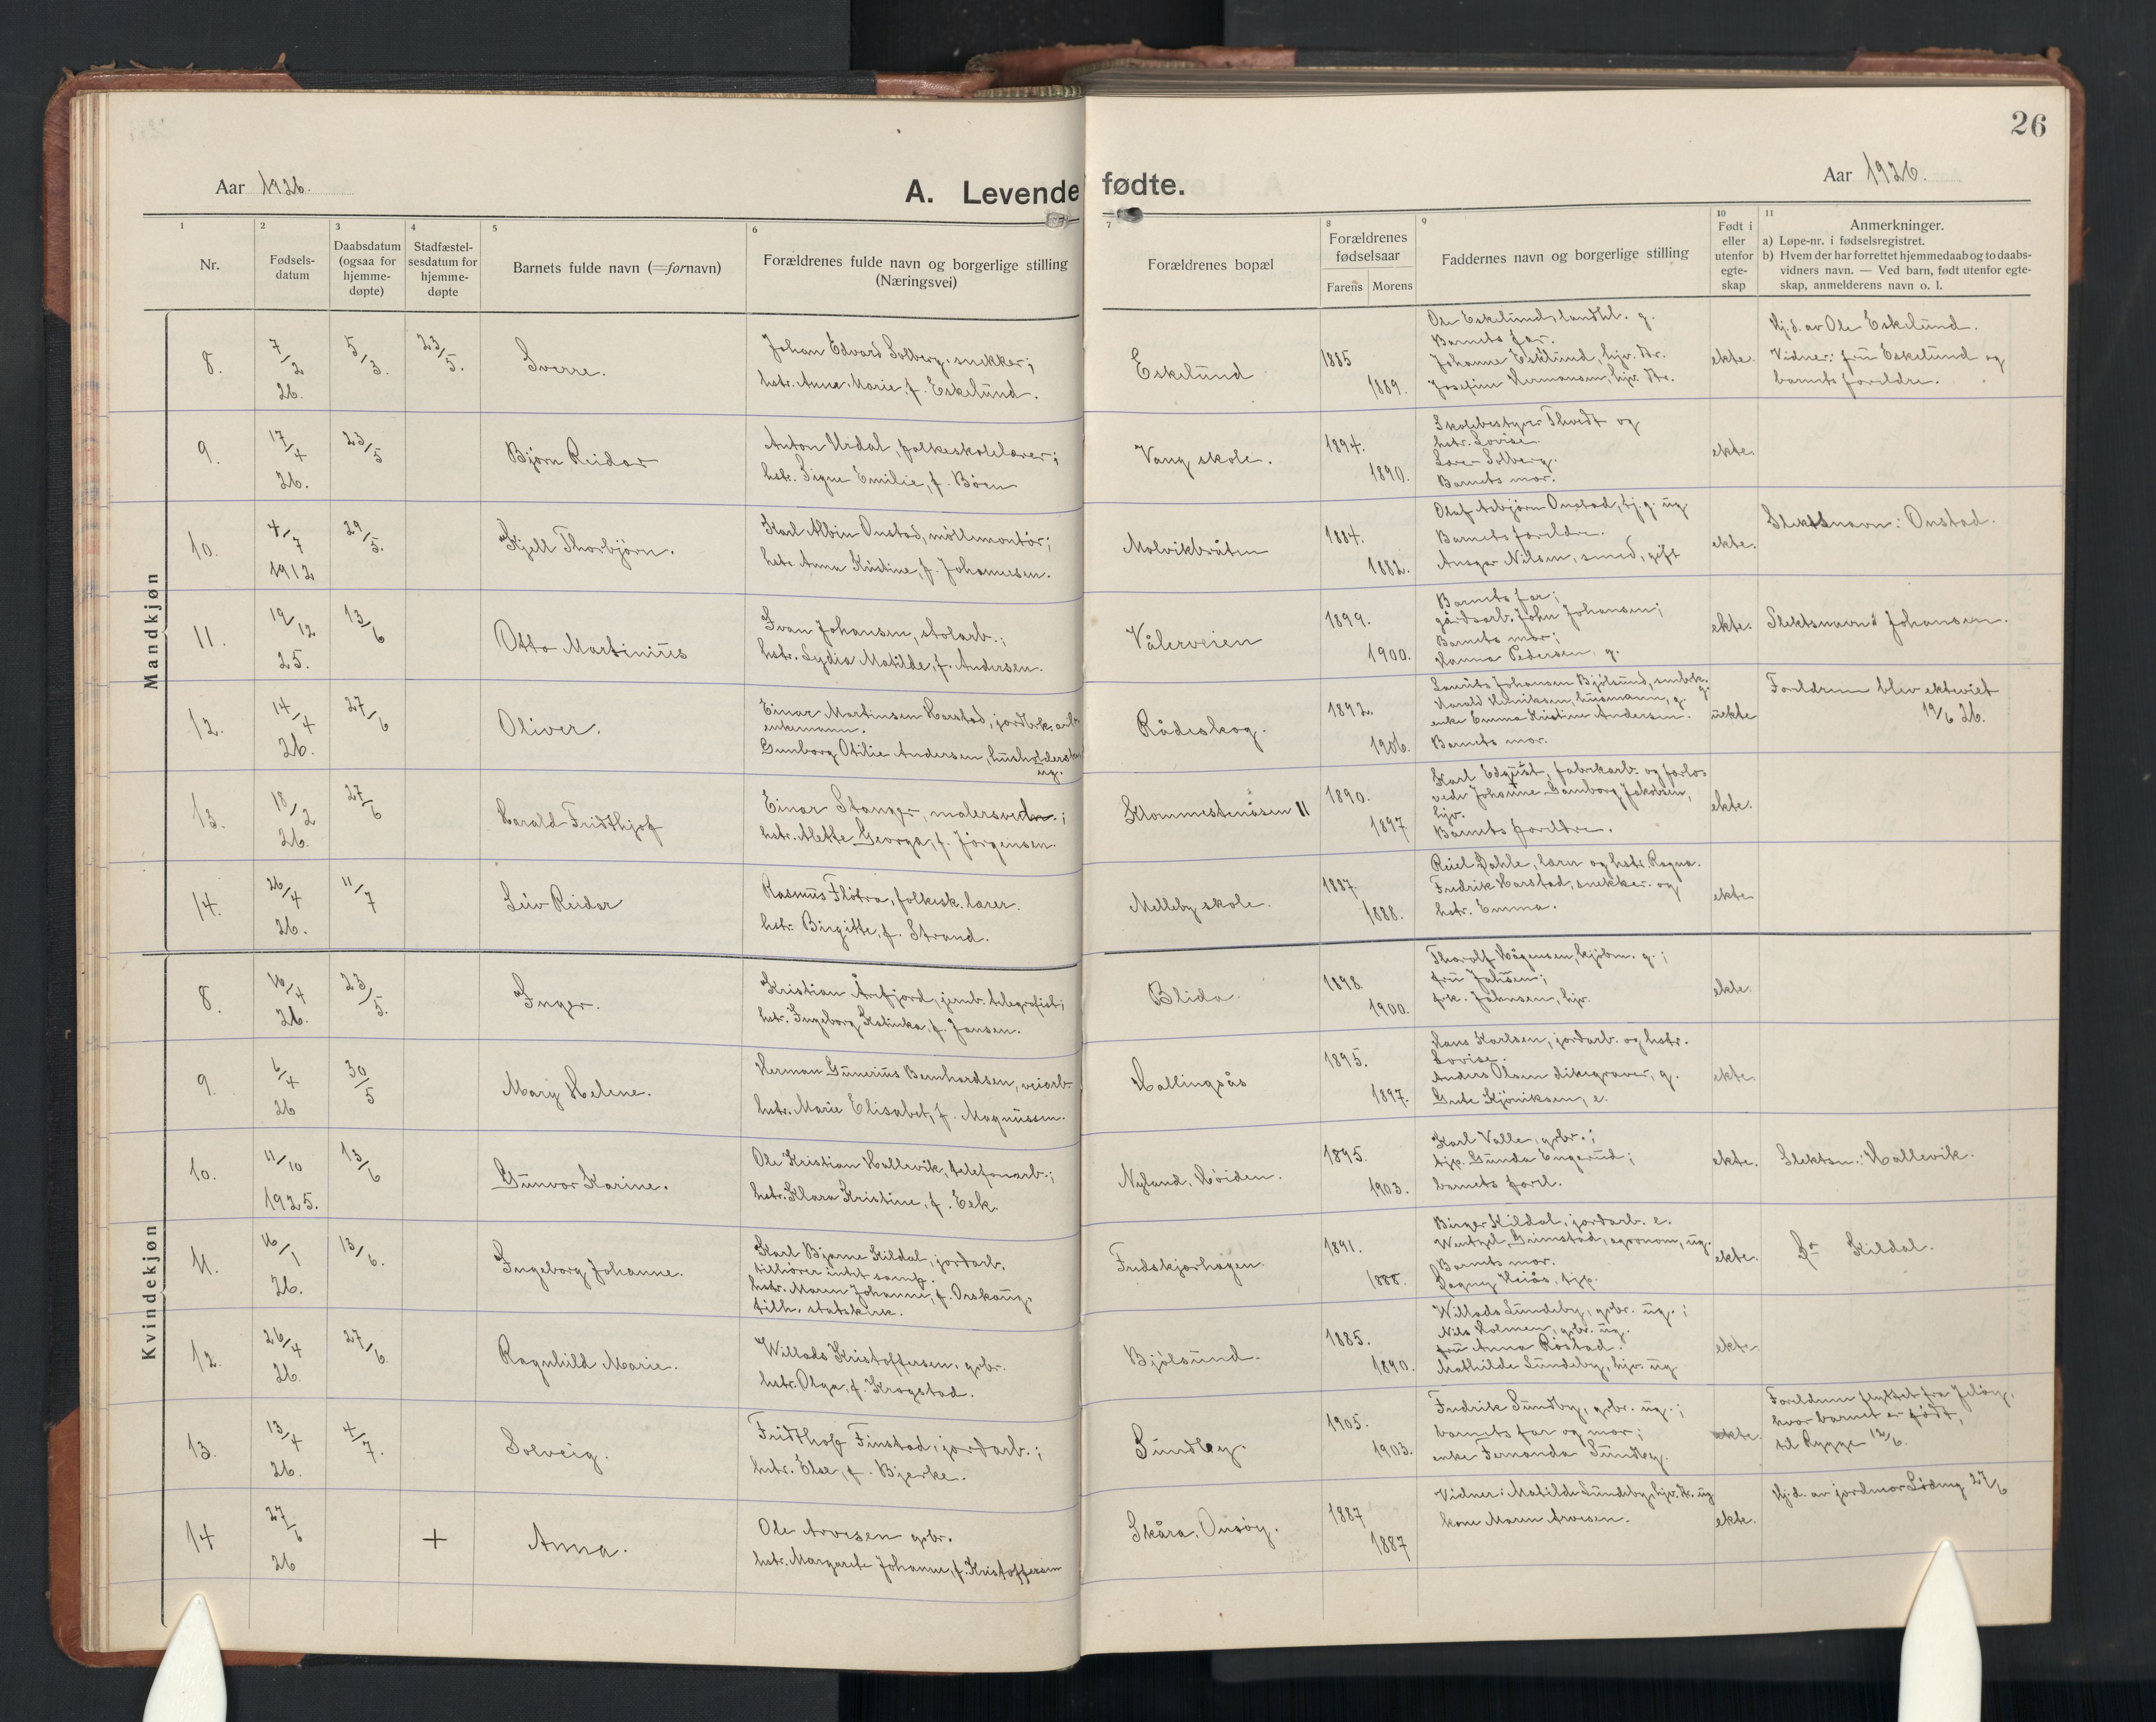 26
Aar 1926.
A. Levende fødte.
Aar 1926.
1
2
3
4
5
6
7
8
9
10
11
Nr.
Fødsels-
datum
Daabsdatum
(ogsaa for
hjemme-
døpte)
Stadfæstel-
sesdatum for
hjemme-
døpte
Barnets fulde navn (=fornavn)
Forældrenes fulde navn og borgerlige stilling
(Næringsvei)
Forældrenes bopæl
Forældrenes
fødselsaar
Farens
Morens
Faddernes navn og borgerlige stilling
Født i
eller
utenfor
egte-
skap
Anmerkninger.
a) Løpe-nr. i fødselsregistret.
b) Hvem der har forrettet hjemmedaab og to daabs-
vidners navn. — Ved barn, født utenfor egte-
skap, anmelderens navn o. l.
Mandkjøn
8.
7/2
26.
5/3.
23/5.
Sverre.
Johan Edvard Solberg, snekker;
hstr. Anna Marie, f. Eskelund.
Eskelund
1885
1889.
Ole Eskelund, landhl. g.
Barnets far.
Johanne Eskelund, hjv. Str.
Josefine Hermansen, hjv. Str.
ekte.
Hj.d. av Ole Eskelund.
Vidner: fru Eskelund og
barnets foreldre.
9.
17/4
26.
23/5
Bjørn Reidar
Anton Urdal, folkeskolelærer;
hstr. Signe Emilie, f. Böen
Vang skole.
1894.
1890.
Skolebestyrer Thvedt og
hstr. Lovise.
Lærer Solberg.
Barnets mor.
ekte.
10.
4/7
1912
29/5.
Kjell Thorbjörn.
Karl Albin Onstad, möllemontör;
hstr. Anna Kristine, f. Johannesen.
Molvikbråten
1884.
1882.
Olaf Asbjørn Onstad, tj.g. ug
Barnets foreldre.
Ansgar Nilsen, smed, gift
ekte.
Slektsnavn: Onstad.
11.
19/12
25.
13/6
Otto Martinius
Ivan Johansen, stolarb.;
hstr. Lydia Matilde, f. Andersen.
Vålerveien
1899.
1900.
Barnets far;
gårdsarb. John Johansen;
Barnets mor;
Hanna Pedersen, g.
ekte.
Slektsnavn: Johansen.
12.
14/4
26.
27/6
Oliver.
Einar Martinsen Harstad, jordbrk. arb.
enkemann.
Gunborg Otilie Andersen, husholderske,
ug.
Rådeskog.
1892.
1906.
Harald Henriksen, husmann, g.
enke Emma Kristine Andersen.
Barnets mor.
uekte
Foreldrene blev ekteviet
19/6 26.
13.
18/2
26.
27/6
Harald Fridthjof
Einar Stanger, malersvend;
hstr. Alette Georga, f. Jörgensen.
Klommestenåsen II
1890.
1897
Karl Edquist, fabrikarb. og forlo-
vede Johanne Gamborg Jakobsen,
hjv.
Barnets foreldre.
ekte.
14.
26/4
26.
11/7
Leiv Reidar
Rasmus Flötra, folkesk. lærer.
hstr. Birgitte, f. Strand.
Melleby skole.
1887.
1888.
Reiel Dahle, lærer og hstr. Ragna.
Fredrik Harstad, snekker. og
hstr. Emma.
ekte
Kvindekjøn
8.
16/4
26.
23/5.
Inger.
Kristian Årfjord, jernb. telegrafist;
hstr. Ingeborg Katinka, f. Jansen.
Blida.
1898.
1900.
Thorolf Hågensen, kjöbm. g.;
fru Jahnsen;
frk. Jahnsen, hjv.
ekte.
9.
6/4
26
30/5
Mary Helene.
Herman Gunerius Bernhardsen, veiarb.
hstr. Marie Elisabet, f. Magnussen.
Hallingsås
1895.
1897.
Hans Karlsen, jordarb. og hstr.
Lovise.
Anders Olsen dikegraver, g.
Grete Kjöniksen, e.
ekte
10.
11/10
1925.
13/6
Gunvor Karine.
Ole Kristian Hallevik, telefonarb.;
hstr. Klara Kristine, f. Eek.
Nyland, Höiden.
1895.
1903.
Karl Valle, grbr.;
tjp. Gunda Engerud;
barnets forel.
ekte.
Slektsn.: Hallevik.
11.
16/1
26.
13/6.
Ingeborg Johanne.
Karl Bjarne Kildal, jordarb.
tilhörer intet samf.
hstr. Maren Johanne, f. Orskaug.
tilh. statskirk.
Fredskjorhagen.
1891.
1888.
Birger Kildal, jordarb. e.
Wentzel Grimstad, agronom, ug.
Barnets mor.
Dagny Heiås, tjp.
ekte.
Kildal.
12.
26/4
26.
27/6
Ragnhild Marie.
Willads Kristoffersen, grbr.
hstr. Olga, f. Krogstad.
Bjölsund.
1885.
1890.
Willads Sundeby, grbr. ug.;
Nils Holmen, grbr. ug.
fru Anna Röstad.
Mathilde Sundeby, hjv. ug
ekte.
13.
13/4
26.
4/7.
Solveig.
Fridthof Finstad, jordarb.;
hstr. Else, f. Bjerke.
Sundby.
1905.
1903.
Fredrik Sundby, grbr. ug.;
barnets far og mor;
enke Fernanda Sundby.
ekte.
Foreldrene flyttet fra Jelöy,
hvor barnet er födt,
til Rygge 12/6.
14
27/6
26
+
Anna.
Ole Arvesen grbr.
hstr. Margarete Johanne, f. Kristoffersen
Skåra, Onsöy.
1887
1887
Vidner: Matilde Sundeby, hjv. Str. ug
kone Maren Arvesen.
ekte.
Hj.d. av jordmor Löding 27/6